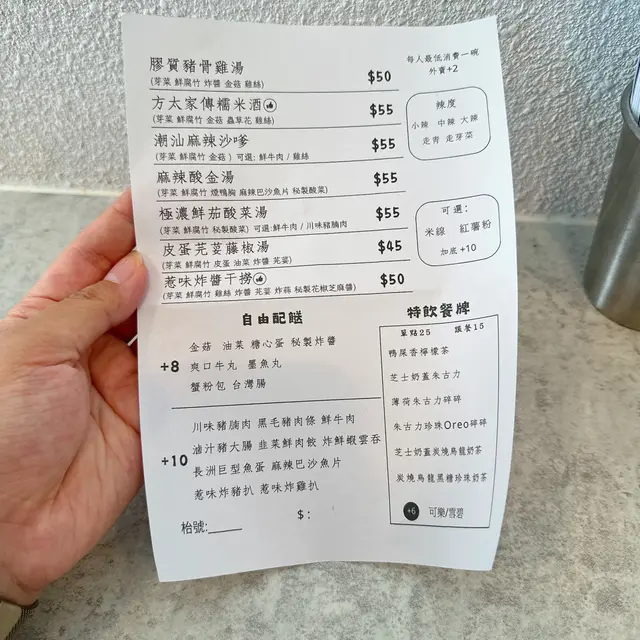 膠質豬骨雞湯 $50
(芽菜 鮮腐竹 炸醬 金菇 雞絲)
方太家傳糯米酒 $55
(芽菜 鮮腐竹 金菇 蟲草花 雞絲)
潮汕麻辣沙嗲 $55
(芽菜 鮮腐竹 金菇) 可選: 鮮牛肉 / 雞絲
麻辣酸金湯 $55
(芽菜 鮮腐竹 煙鴨胸 麻辣巴沙魚片 秘製酸菜)
極濃鮮茄酸菜湯 $55
(芽菜 鮮腐竹 秘製酸菜) 可選:鮮牛肉 / 川味豬腩肉
皮蛋芫荽藤椒湯 $45
(芽菜 鮮腐竹 皮蛋 油菜 炸醬 芫荽)
惹味炸醬干撈 $50
(芽菜 鮮腐竹 雞絲 炸醬 芫荽 炸蒜 秘製花椒芝麻醬)
每人最低消費一碗
外賣+2
辣度
小辣 中辣 大辣
走青 走芽菜
可選:
米線 紅薯粉
加底 +10
自由配餸
+8
金菇 油菜 糖心蛋 秘製炸醬
爽口牛丸 墨魚丸
蟹粉包 台灣腸
+10
川味豬腩肉 黑毛豬肉條 鮮牛肉
滷汁豬大腸 韭菜鮮肉餃 炸鮮蝦雲吞
長洲巨型魚蛋 麻辣巴沙魚片
惹味炸豬扒 惹味炸雞扒
枱號:_____ $:
特飲餐牌
單點25 跟餐15
鴨屎香檸檬茶
芝士奶蓋朱古力
薄荷朱古力碎碎
朱古力珍珠Oreo碎碎
芝士奶蓋炭燒烏龍奶茶
炭燒烏龍黑糖珍珠奶茶
+6 可樂/雪碧